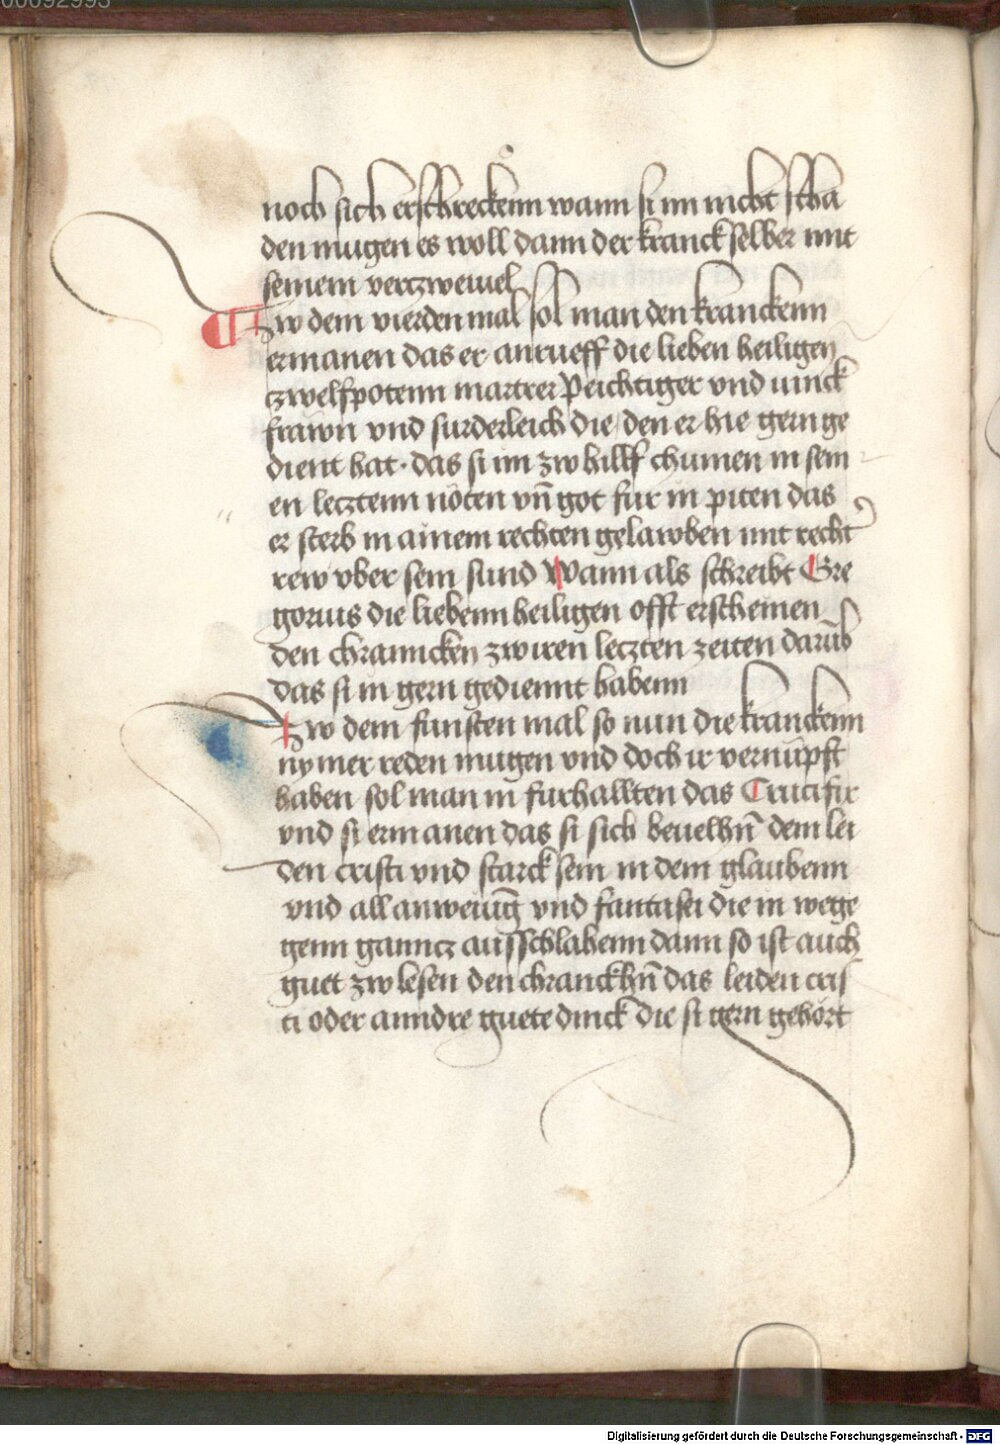 00092993
noch sich erschreckenn wann si im nicht scha
den mugen es woll dann der kranck selber mit
seinem verczweiuel
Zw dem vierden mal sol man den kranckenn
ermanen das er anrueff die lieben heiligen
czwelfpotenn martrer Peichtiger vnd iunck
frawn vnd surderleich die den er hie gern ge
dient hat · das si im zw hillf chumen in sein
en lecztenn nöten vn̄ got fur in piten das
er sterb in ainem rechten gelawben mit recht
rew vber sein sund Wann als schreibt Gre
gorius die liebenn heiligen offt erscheinen
den chranncken zw iren leczten zeiten darūb
das si in gern gediennt habenn
Zw dem funften mal so nun die kranckenn
nymer reden mugen vnd doch ir vernūpft
haben sol man in furhallten das Crucifix
vnd si ermanen das si sich beuelhn̄ dem lei
den cristi vnd starck sein in dem glaubenn
vnd all anweiūg vnd fantasei die in wege
genn ganncz ausschlahenn dann so ist auch
guet zw lesen den chranckhn̄ das leiden cris
ti oder anndre guete dinck die si gern gehört
Digitalisierung gefördert durch die Deutsche Forschungsgemeinschaft - DFG